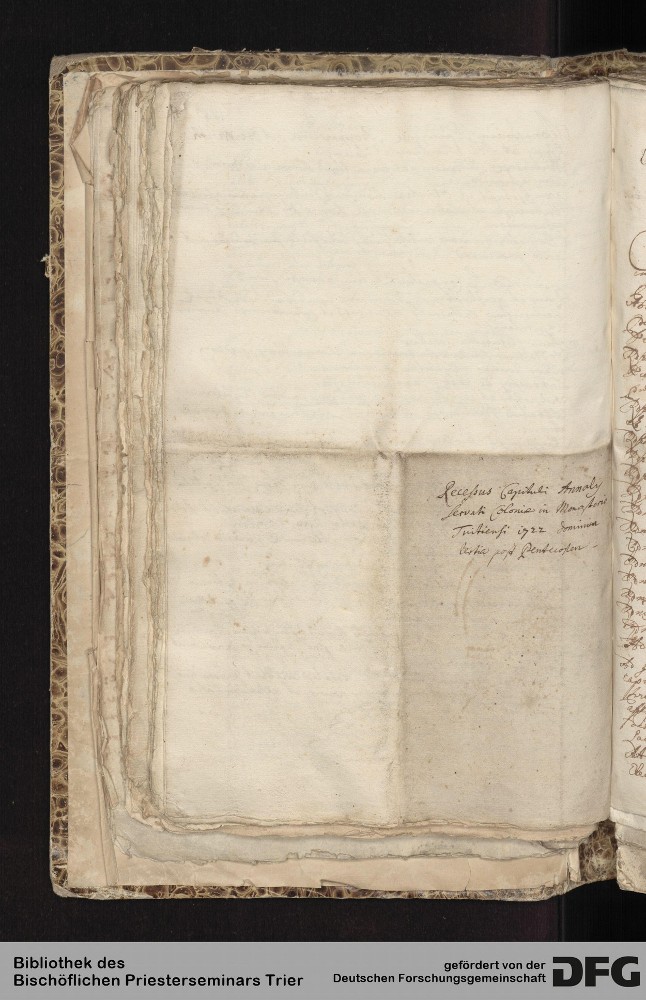 Recessus Capituli Annalis
servati Coloniæ in Monasterio
Tuitiensi 1722 Dominica
tertia post Pentecosten
Bibliothek des
Bischöflichen Priesterseminars Trier
gefördert von der
Deutschen Forschungsgemeinschaft
DFG